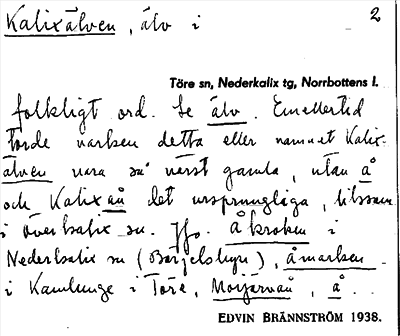 Kalixälven, älv i 2
Töre sn, Nederkalix tg, Norrbottens l.
folkligt ord. Se älv. Emellertid
torde varken detta eller namnet Kalix-
älven vara så värst gamla, utan å
och Kalixån det ursprungliga, liksom
i Överkalix sn. Jfr. åkroken i
Nederkalix sn (Börjelsbyn), åmarken
i Kamlunge i Töre, Morjärvån, å.
EDVIN BRÄNNSTRÖM 1938.